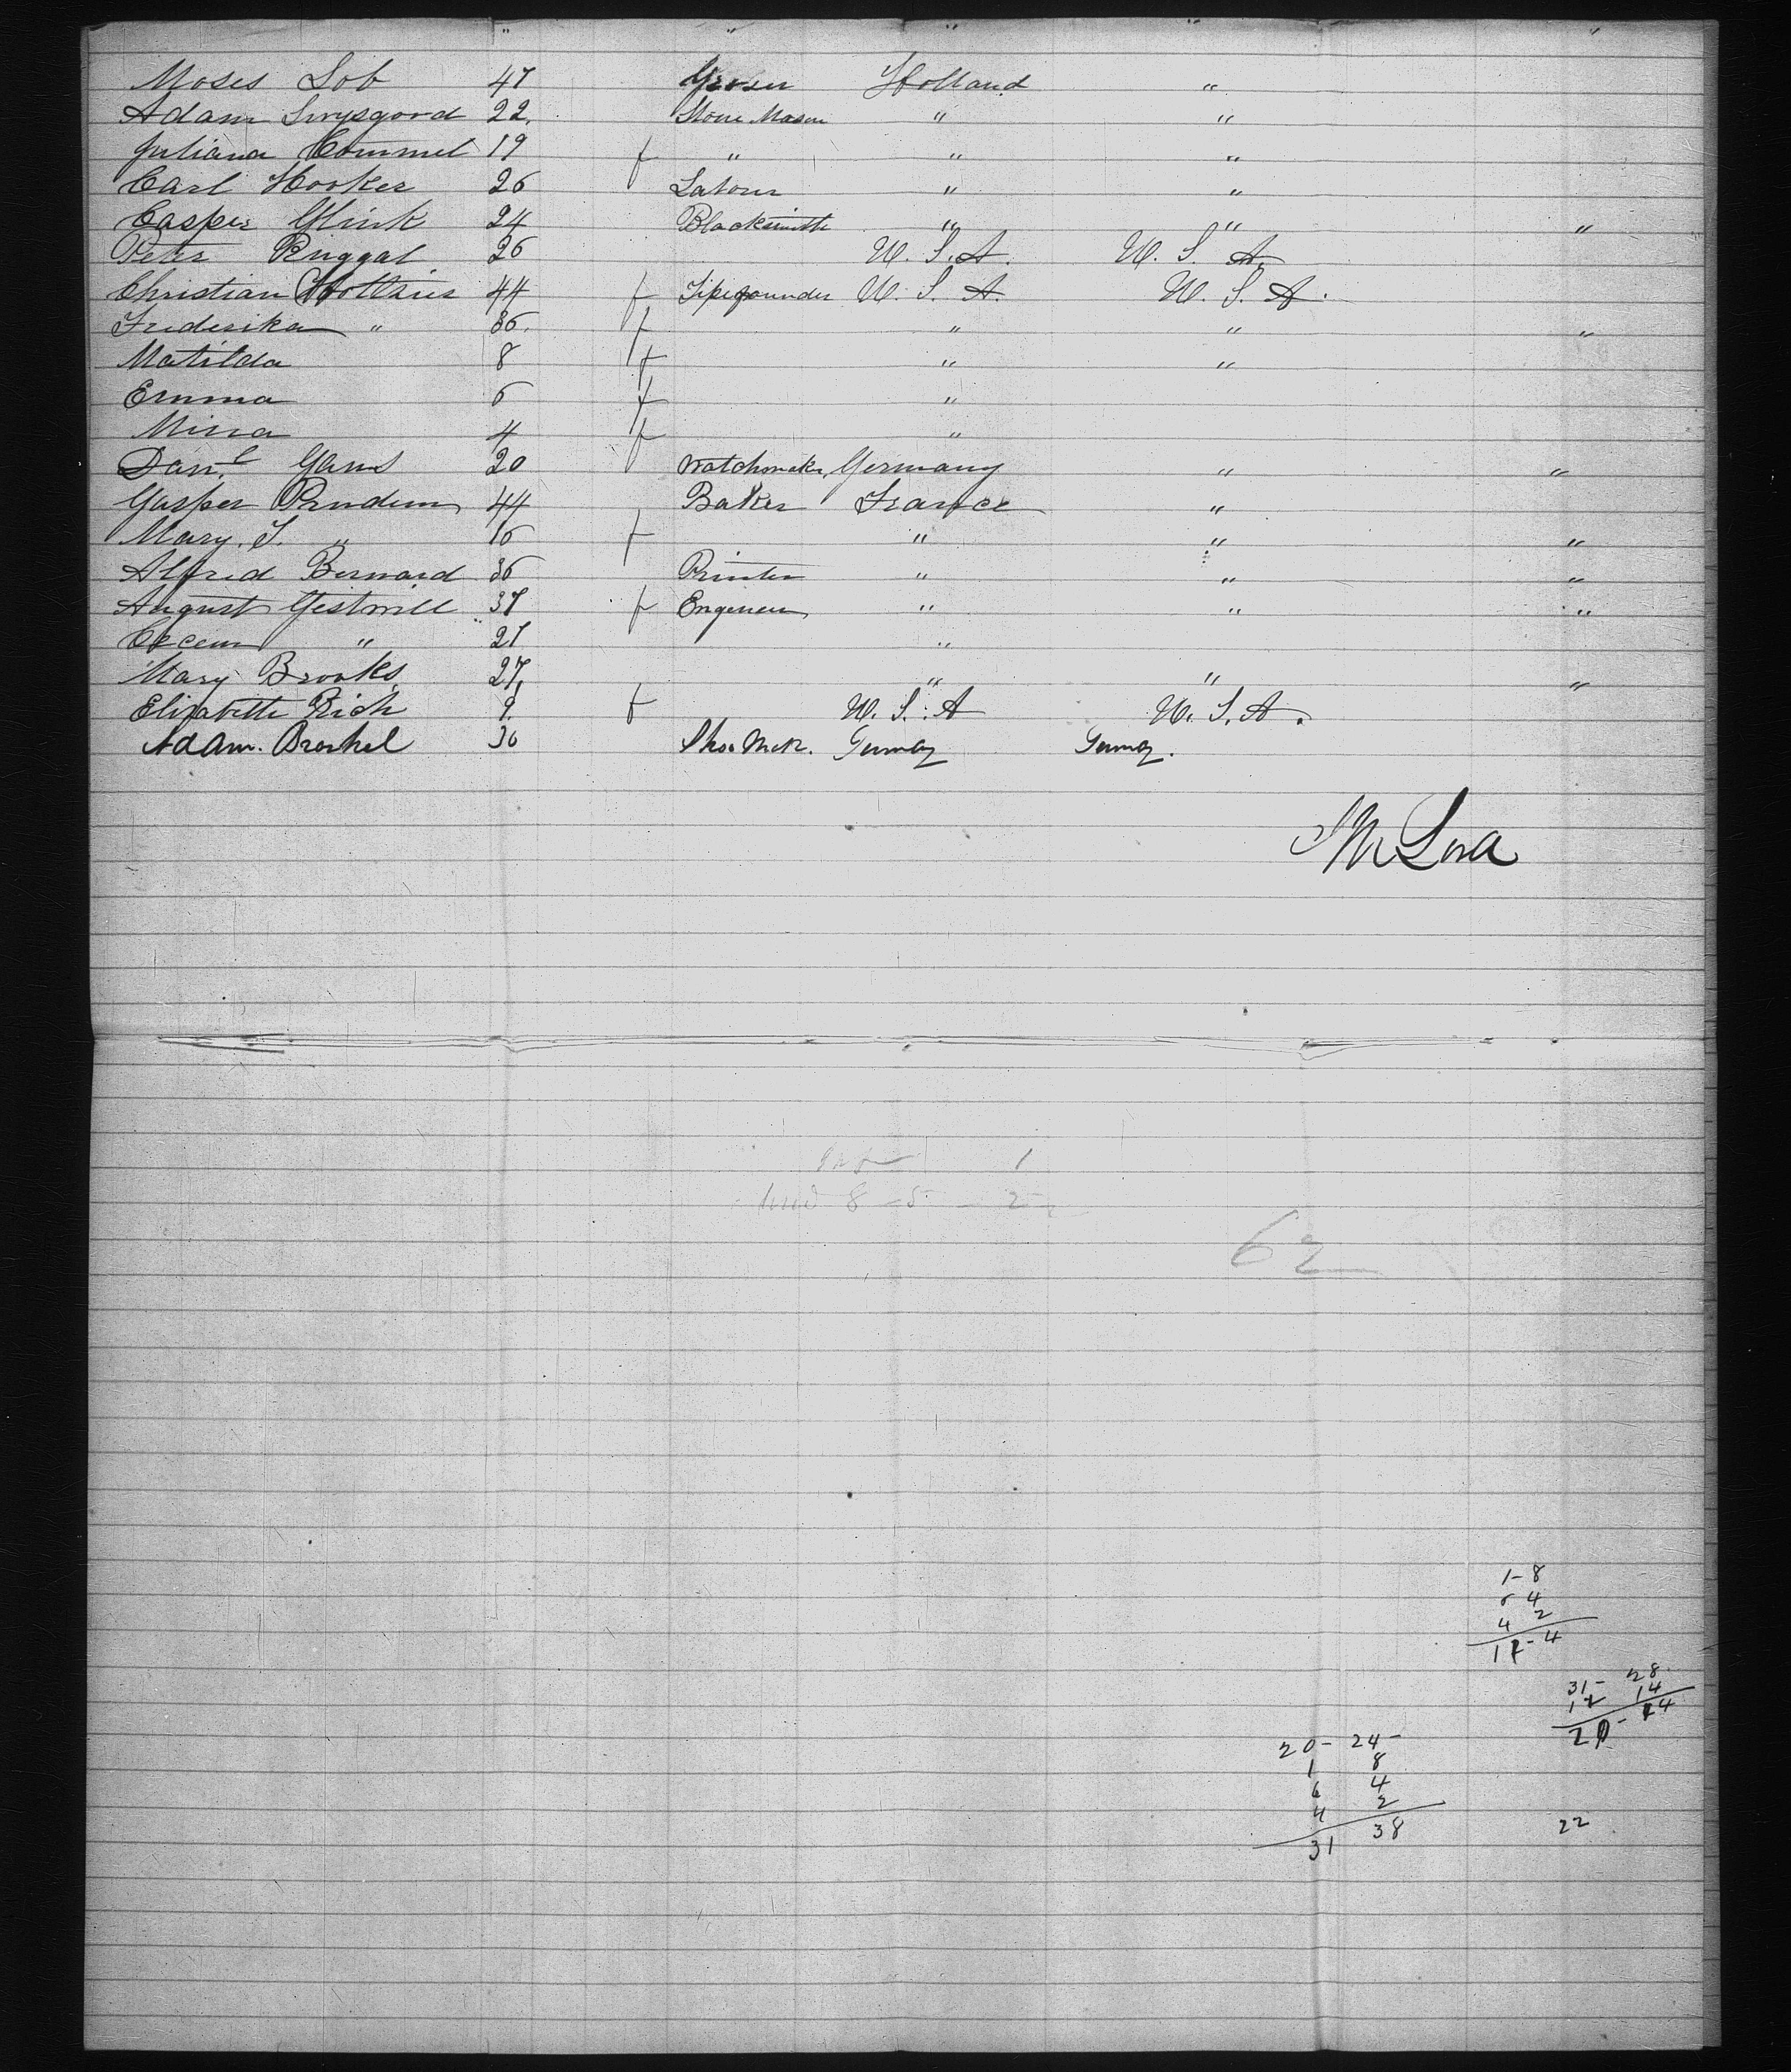 " " " " "
Moses Lob 47 Grosser Holland "
Adam Swysgood 22. Stone Mason " "
Juliana Commel 19 f " " "
Carl Hooker 26 Labour " "
Casper Glink 24 Blacksmith " " "
Peter Ruggal 26 U. S. A. U. S. A.
Christian 44 f Tipefounder U. S. A. U. S. A.
Frederika " 36. f " " "
Matilda 8 f " "
Emma 6 f "
Mina 4 f "
Danl. Gans 20 Watchmaker Germany " "
Gasper 44 Baker France "
Mary. S. " 16 f " " "
Alfred Bernard 36 Printer " " "
August Gestmill 37 f Engeneur " " "
" 27 "
Mary Brooks 27, " " "
Elizabeth Rich 9. f U. S. A U. S. A.
Adam. Breshel 30 Shoe Mkr. Germay Germay.
1
8 - 5 - 2
62
1 - 8
4
4 2
- 4
31 - 28
14
20 - 24 -
1 8
6 4
4 2
31 38
22